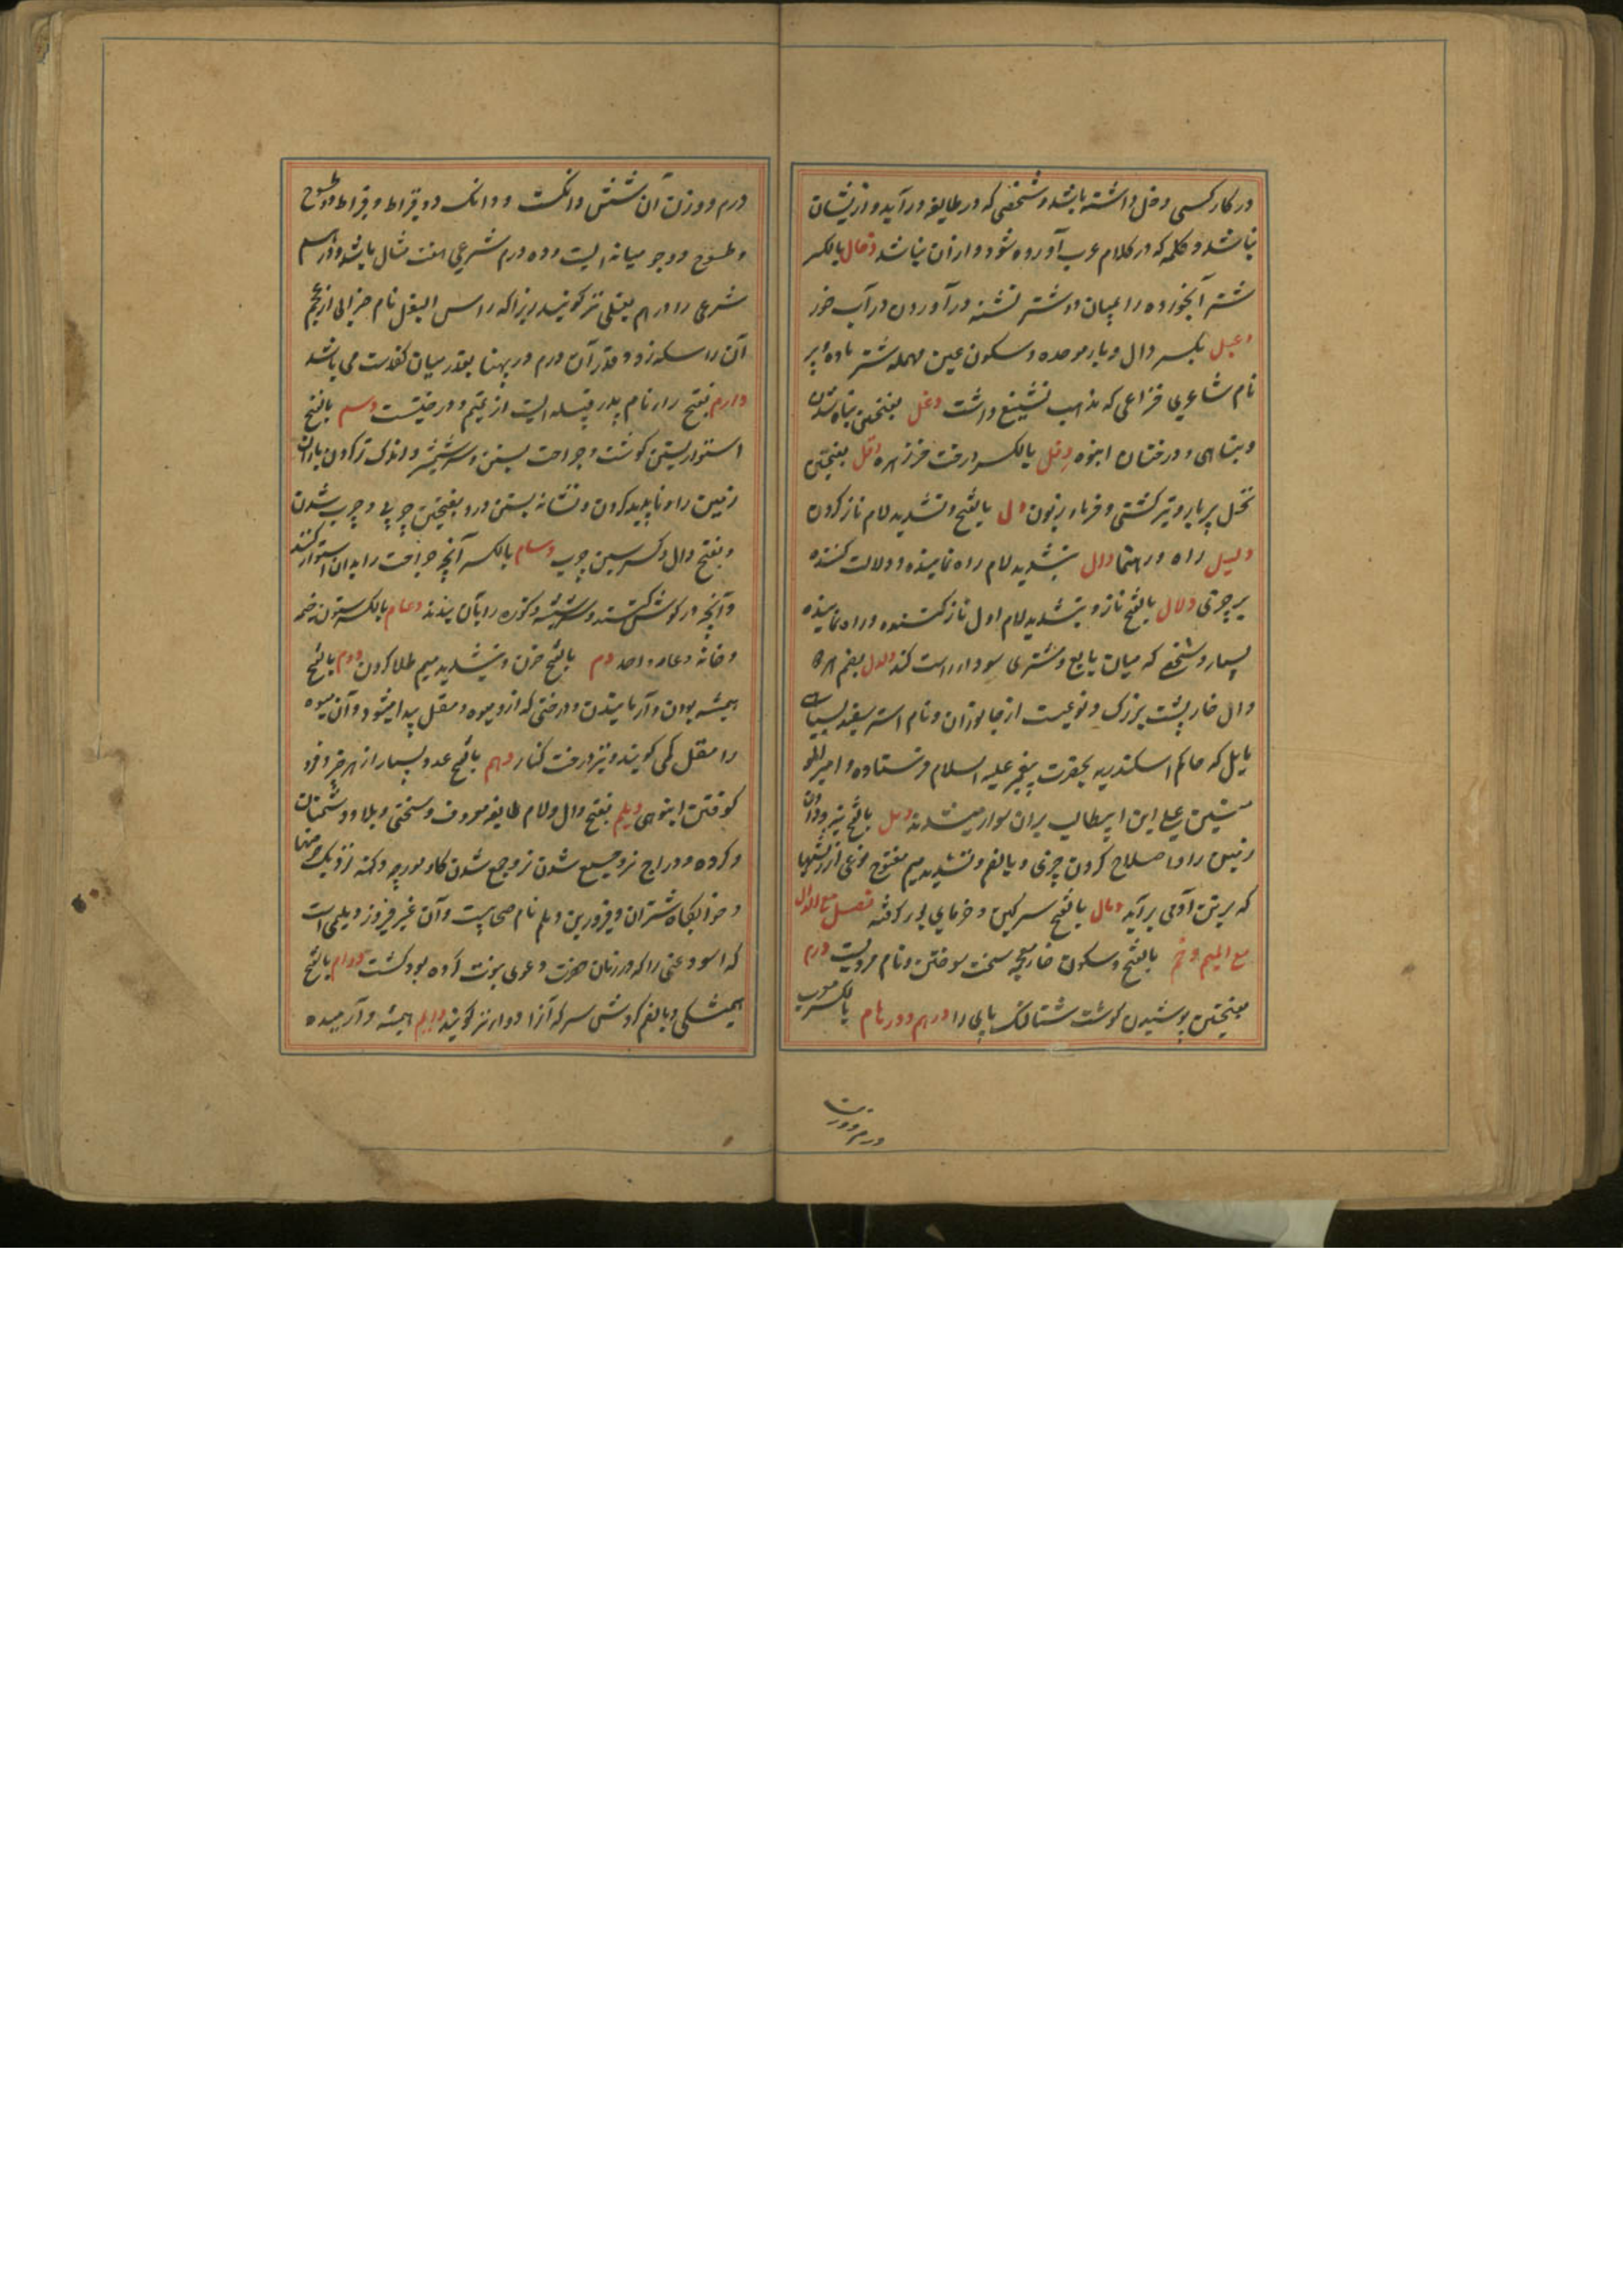 در کار کسی دخل داشته باشد و شخصی که در طایفه درآید و ازیشان
نباشد و کلمه که در کلام عرب آورده شود و ازان نباشد دخال بالکسر
شتر آبخورده را بمیان دو شتر تشنه در آوردن در آب خور
دعبل بکسر دال و باء موحده و سکون عین مهمله شتر ماده پیر
نام شاعری خزاعی که مذهب تشیع داشت دغل بفتحتین تباه شدن
و تباهی و درختان انبوه دفل بالکسر درخت خرزهره دقل بفتحتین
نخل پر بار و تیر کشتی و خرماء زبون دل بالفتح و تشدید لام ناز کردن
دلیل راه و رهنما دال بتشدید لام راه نماینده و دلالت کننده
بر چیزی دلال بالفتح ناز و بتشدید لام اول ناز کننده و راه نماینده
بسیار و شخصی که میان بایع و مشتری سودا راست کند دلدل بضم هر دو
دال خارپشت بزرگ و نوعیست از جانوران و نام استر سفید بسیاهی
مایل که حاکم اسکندریه بحضرت پیغمبر علیه السلام فرستاده و امیر المو
منین علی ابن ابیطالب بران سوار میشدند دمل بالفتح نیرو دادن
زمین را و اصلاح کردن چیزی و بالضم و تشدید میم مفتوح نوعی از ریشها
که بر تن آدمی برآید دمال بالفتح سرگین و خرمای بد فصل مع الدال
مع المیم دخم بالفتح و سکون خاء معجمه سخت سوختن و نام مردیست درم
بفتحتین پوشیدن گوشت شتالنگ پای را درهم و درهام بالکسر معرب
درم و وزن
درم و وزن آن شش دانگ است و دانک دو قیراط و قیراط دو طسوج
و طسوج دو جو میانه ایست و ده درم شرعی هفت مثقال باشد و درهم
شرعی را درهم بغلی نیز گویند زیرا که راس البغل نام ضرابی از عجم
آن را سکه زد و قدر آن درم در پهنا بقدر میان کفدست می باشد
دارم بفتح را نام پدر قبیله ایست از تمیم و درختیست دسم بالفتح
استوار بستن گوشت و جراحت بستن و سر شیشه و اندک تر کردن باران
زمین را و ناپدید کردن و نشانه بستن در و بفتحتین چربی و چرب شدن
و بفتح دال و کسر سین چرب دسام بالکسر آنچه جراحت را بدان استوار کنند
و آنچه در گوش کنند و سر شیشه و کوزه را بآن بندند دعام بالکسر ستون خیمه
و خانه دعامه واحد دم بالفتح خون و بتشدید میم طلا کردن دوم بالفتح
همیشه بودن و آرمانیدن و درختی که ازو میوه مقل پیدا میشود و آن میوه
را مقل مکی گویند و نیز درخت کنار دهم بالفتح عدد بسیار از هر چیز و فرو
کوفتن انبوهی دیلم بفتح دال و لام طایفه معروف و سختی و بلا و دشمنان
و گروه و دراج نر و جمیع شدن نر و جمع شدن گاه مورچه و کنه نزدیک حوضها
و خوابگاه شتران و فیروز بن دیلم نام صحابیست و آن غیر فیروز دیلمی است
که اسود عنسی را که در زمان حضرت دعوی نبوت کرده بود کشت دوام بالفتح
همیشگی و بالضم گردش سر که آنرا دوار نیز گویند دایم همیشه و آرمیده